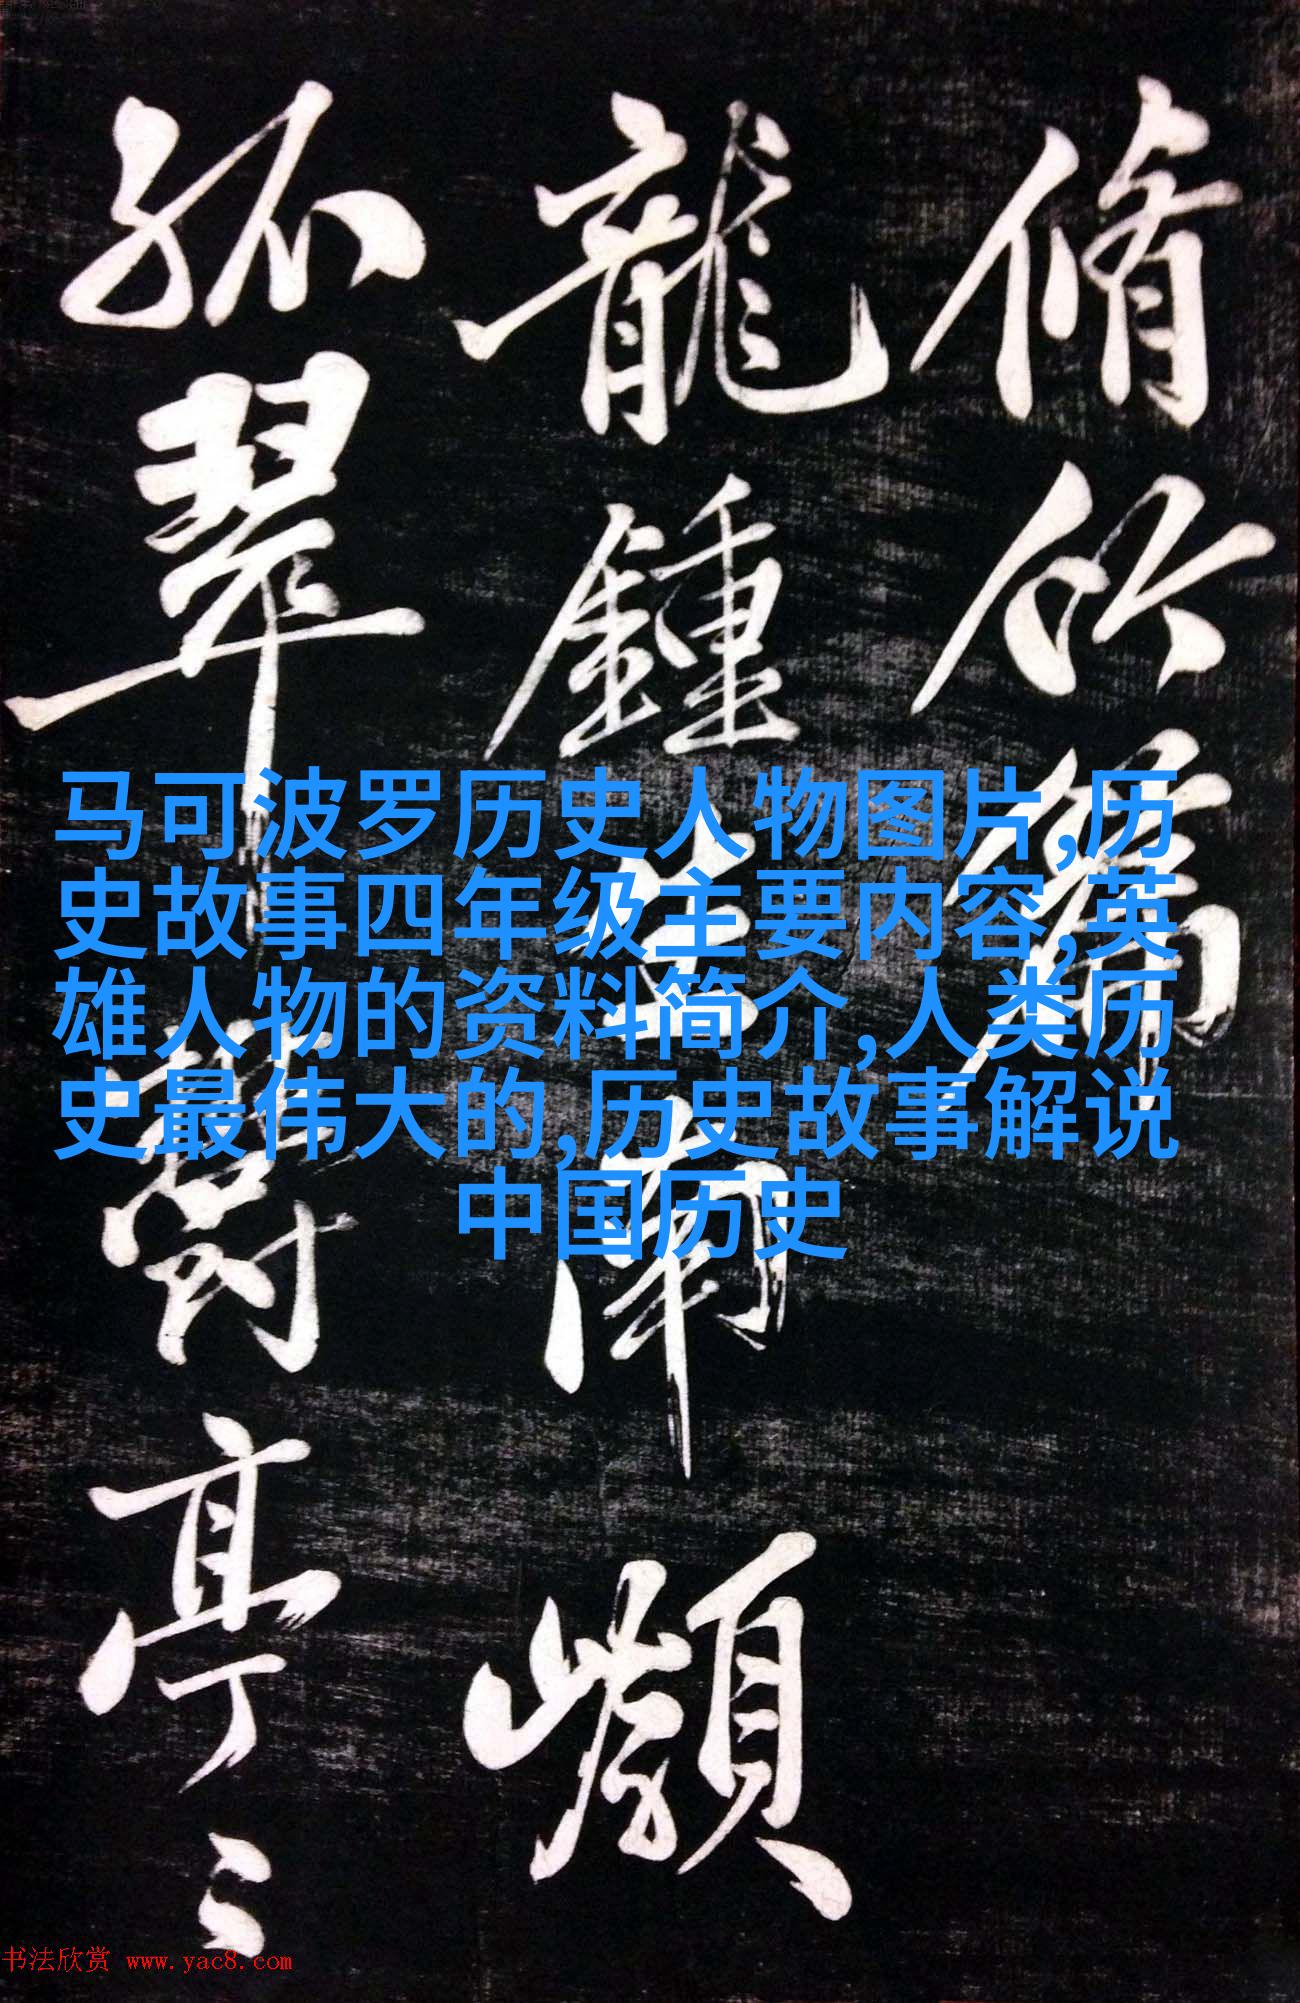 脩竹篇
龍鍾生南
孤翠鬱亭〻
马可波罗历史人物图片,历
史故事四年级主要内容,英
雄人物的资料简介,人类历
史最伟大的,历史故事解说
中国历史
书法欣赏 www.yac8.com